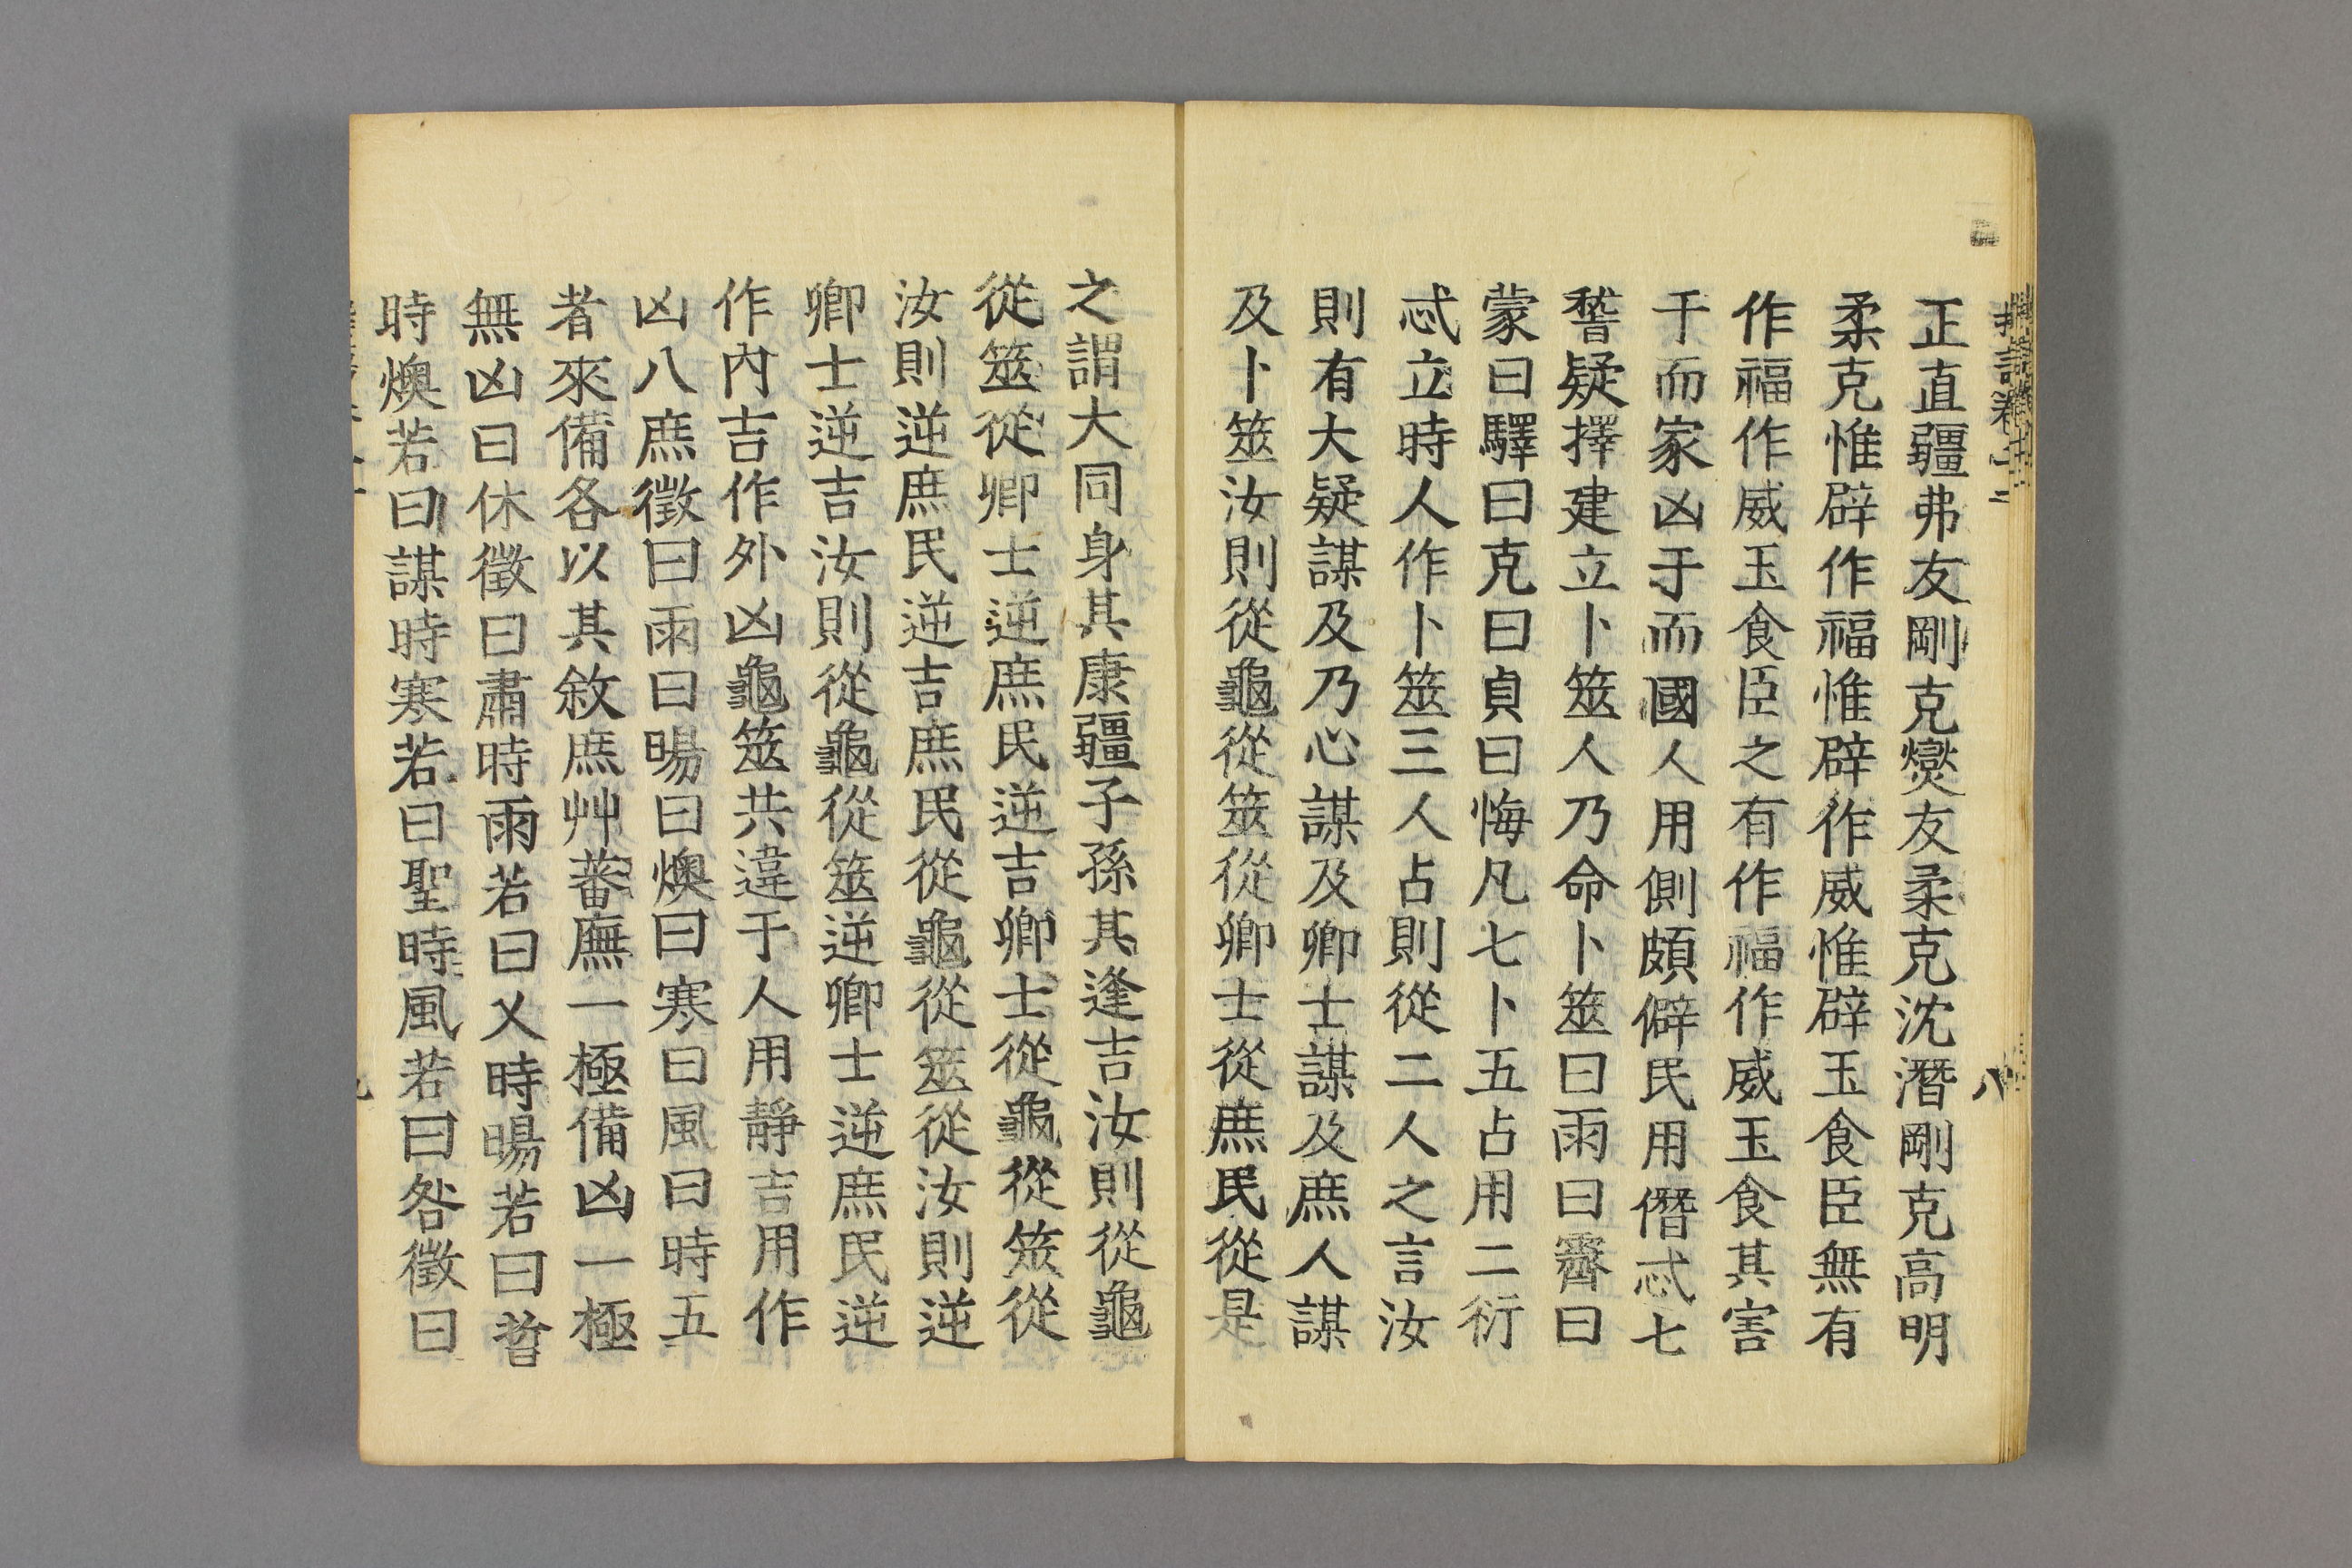 正直疆弗友剛克燮友柔克沈潛剛克高明
柔克惟辟作福惟辟作威惟辟玉食臣無有
作福作威玉食臣之有作福作威玉食其害
于而家凶于而國人用側頗僻民用僭忒七
稽疑擇建立卜筮人乃命卜筮曰雨曰霽曰
蒙曰驛曰克曰貞曰悔凡七卜五占用二衍
忒立時人作卜筮三人占則從二人之言汝
則有大疑謀及乃心謀及卿士謀及庶人謀
及卜筮汝則從龜從筮從卿士從庶民從是
之謂大同身其康疆子孫其逢吉汝則從龜
從筮從卿士逆庶民逆吉卿士從龜從筮從
汝則逆庶民逆吉庶民從龜從筮從汝則逆
卿士逆吉汝則從龜從筮逆卿士逆庶民逆
作內吉作外凶龜筮共違于人用靜吉用作
凶八庶徵曰雨曰暘曰燠曰寒曰風曰時五
者來備各以其敘庶艸蕃廡一極備凶一極
無凶曰休徵曰肅時雨若曰乂時暘若曰晢
時燠若曰謀時寒若曰聖時風若曰咎徵曰